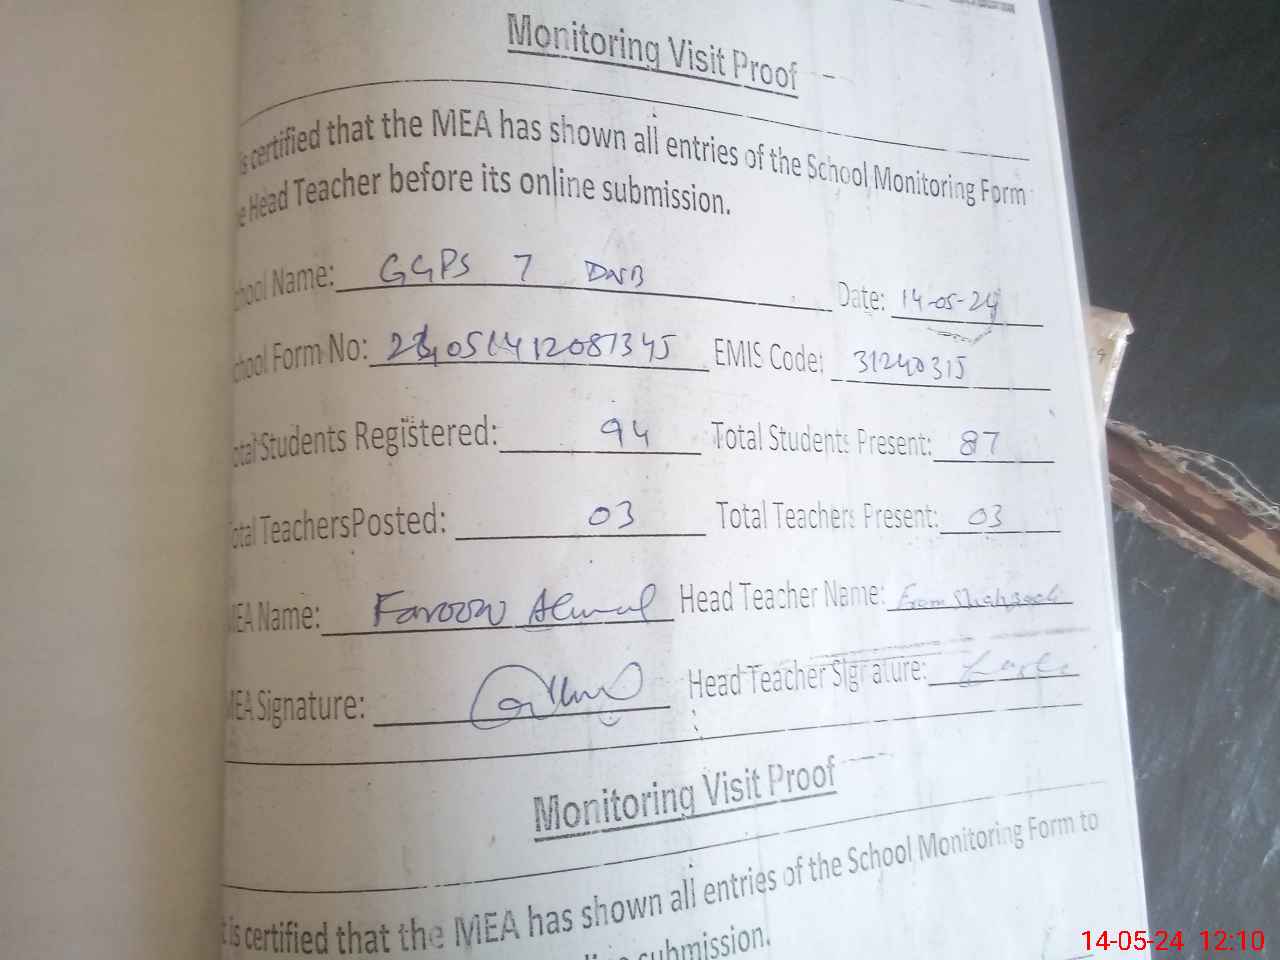 Monitoring Visit Proof
is certified that the MEA has shown all entries of the School Monitoring Form
e Head Teacher before its online submission.
hool Name: GGPS 7 DNB Date: 14-05-24
hool Form No: EMIS Code: 31240315
otal Students Registered: 94 Total Students Present: 87
otal TeachersPosted: 03 Total Teachers Present: 03
MEA Name: Farooq Ahmad Head Teacher Name:
MEA Signature: Head Teacher Signature:
Monitoring Visit Proof
t is certified that the MEA has shown all entries of the School Monitoring Form to
submission.
14-05-24 12:10